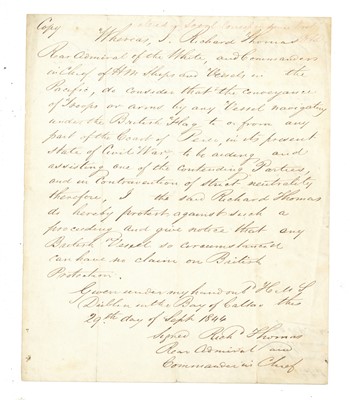 Copy
Whereas, I Richard Thomas
Rear Admiral of the White, and Commander
in Chief of H M Ships and Vessels in the
Pacific, do consider that the conveyance
of Troops or arms by any Vessel navigating
under the British Flag to or from any
part of the Coast of Peru, in its present
state of Civil War, to be aiding and
assisting one of the contending Parties,
and in Contravention of strict neutrality
therefore, I the said Richard Thomas
do hereby protest against such a
proceeding and give notice that any
British Vessel so circumstanced
can have no claim on British
Protection.
Given under my hand on bd H.M.S
Dublin in the Bay of Callao this
29th day of Sept 1844
Signed Richd Thomas
Rear Admiral and
Commander in Chief